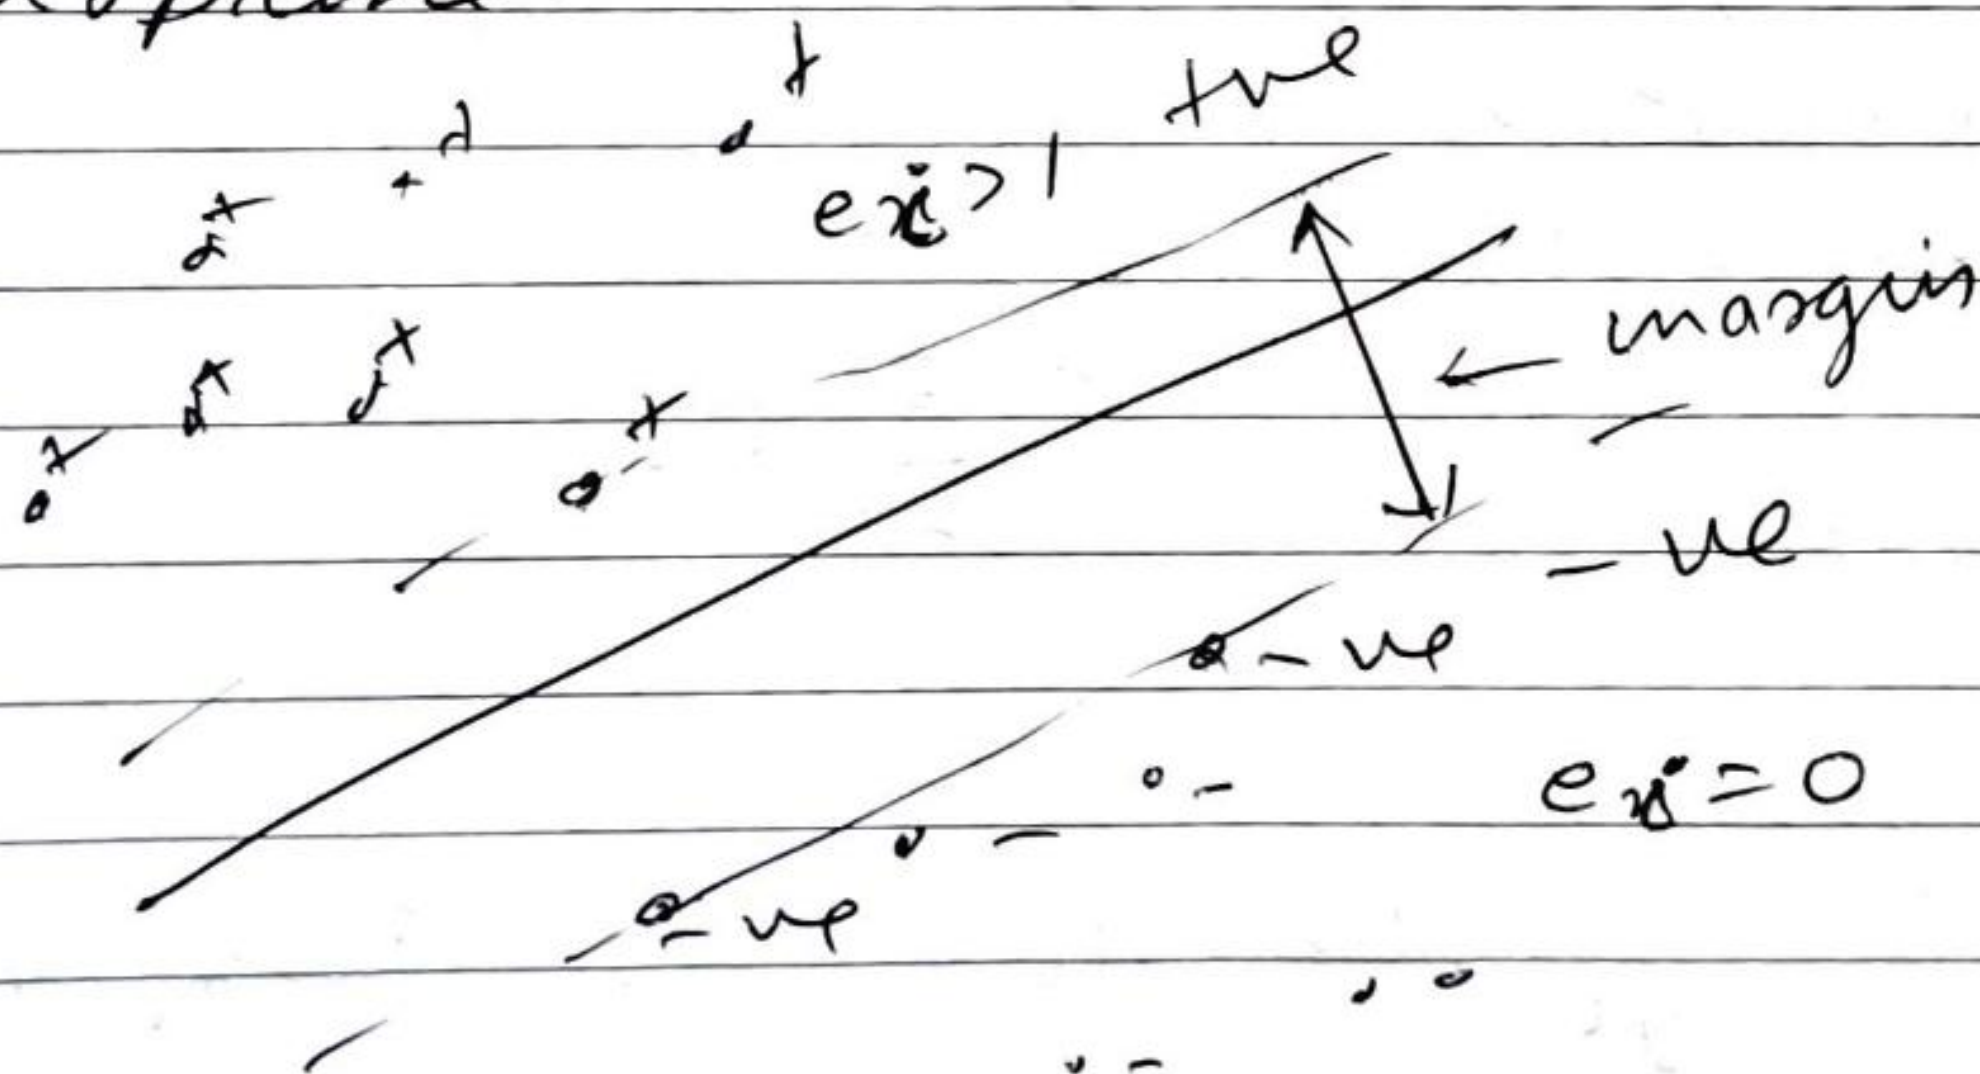 +
+ve
+
ex_i > 1
+
+
margin
+
+
+
+
- ve
- ve
ex_i = 0
-
-
- ve
-